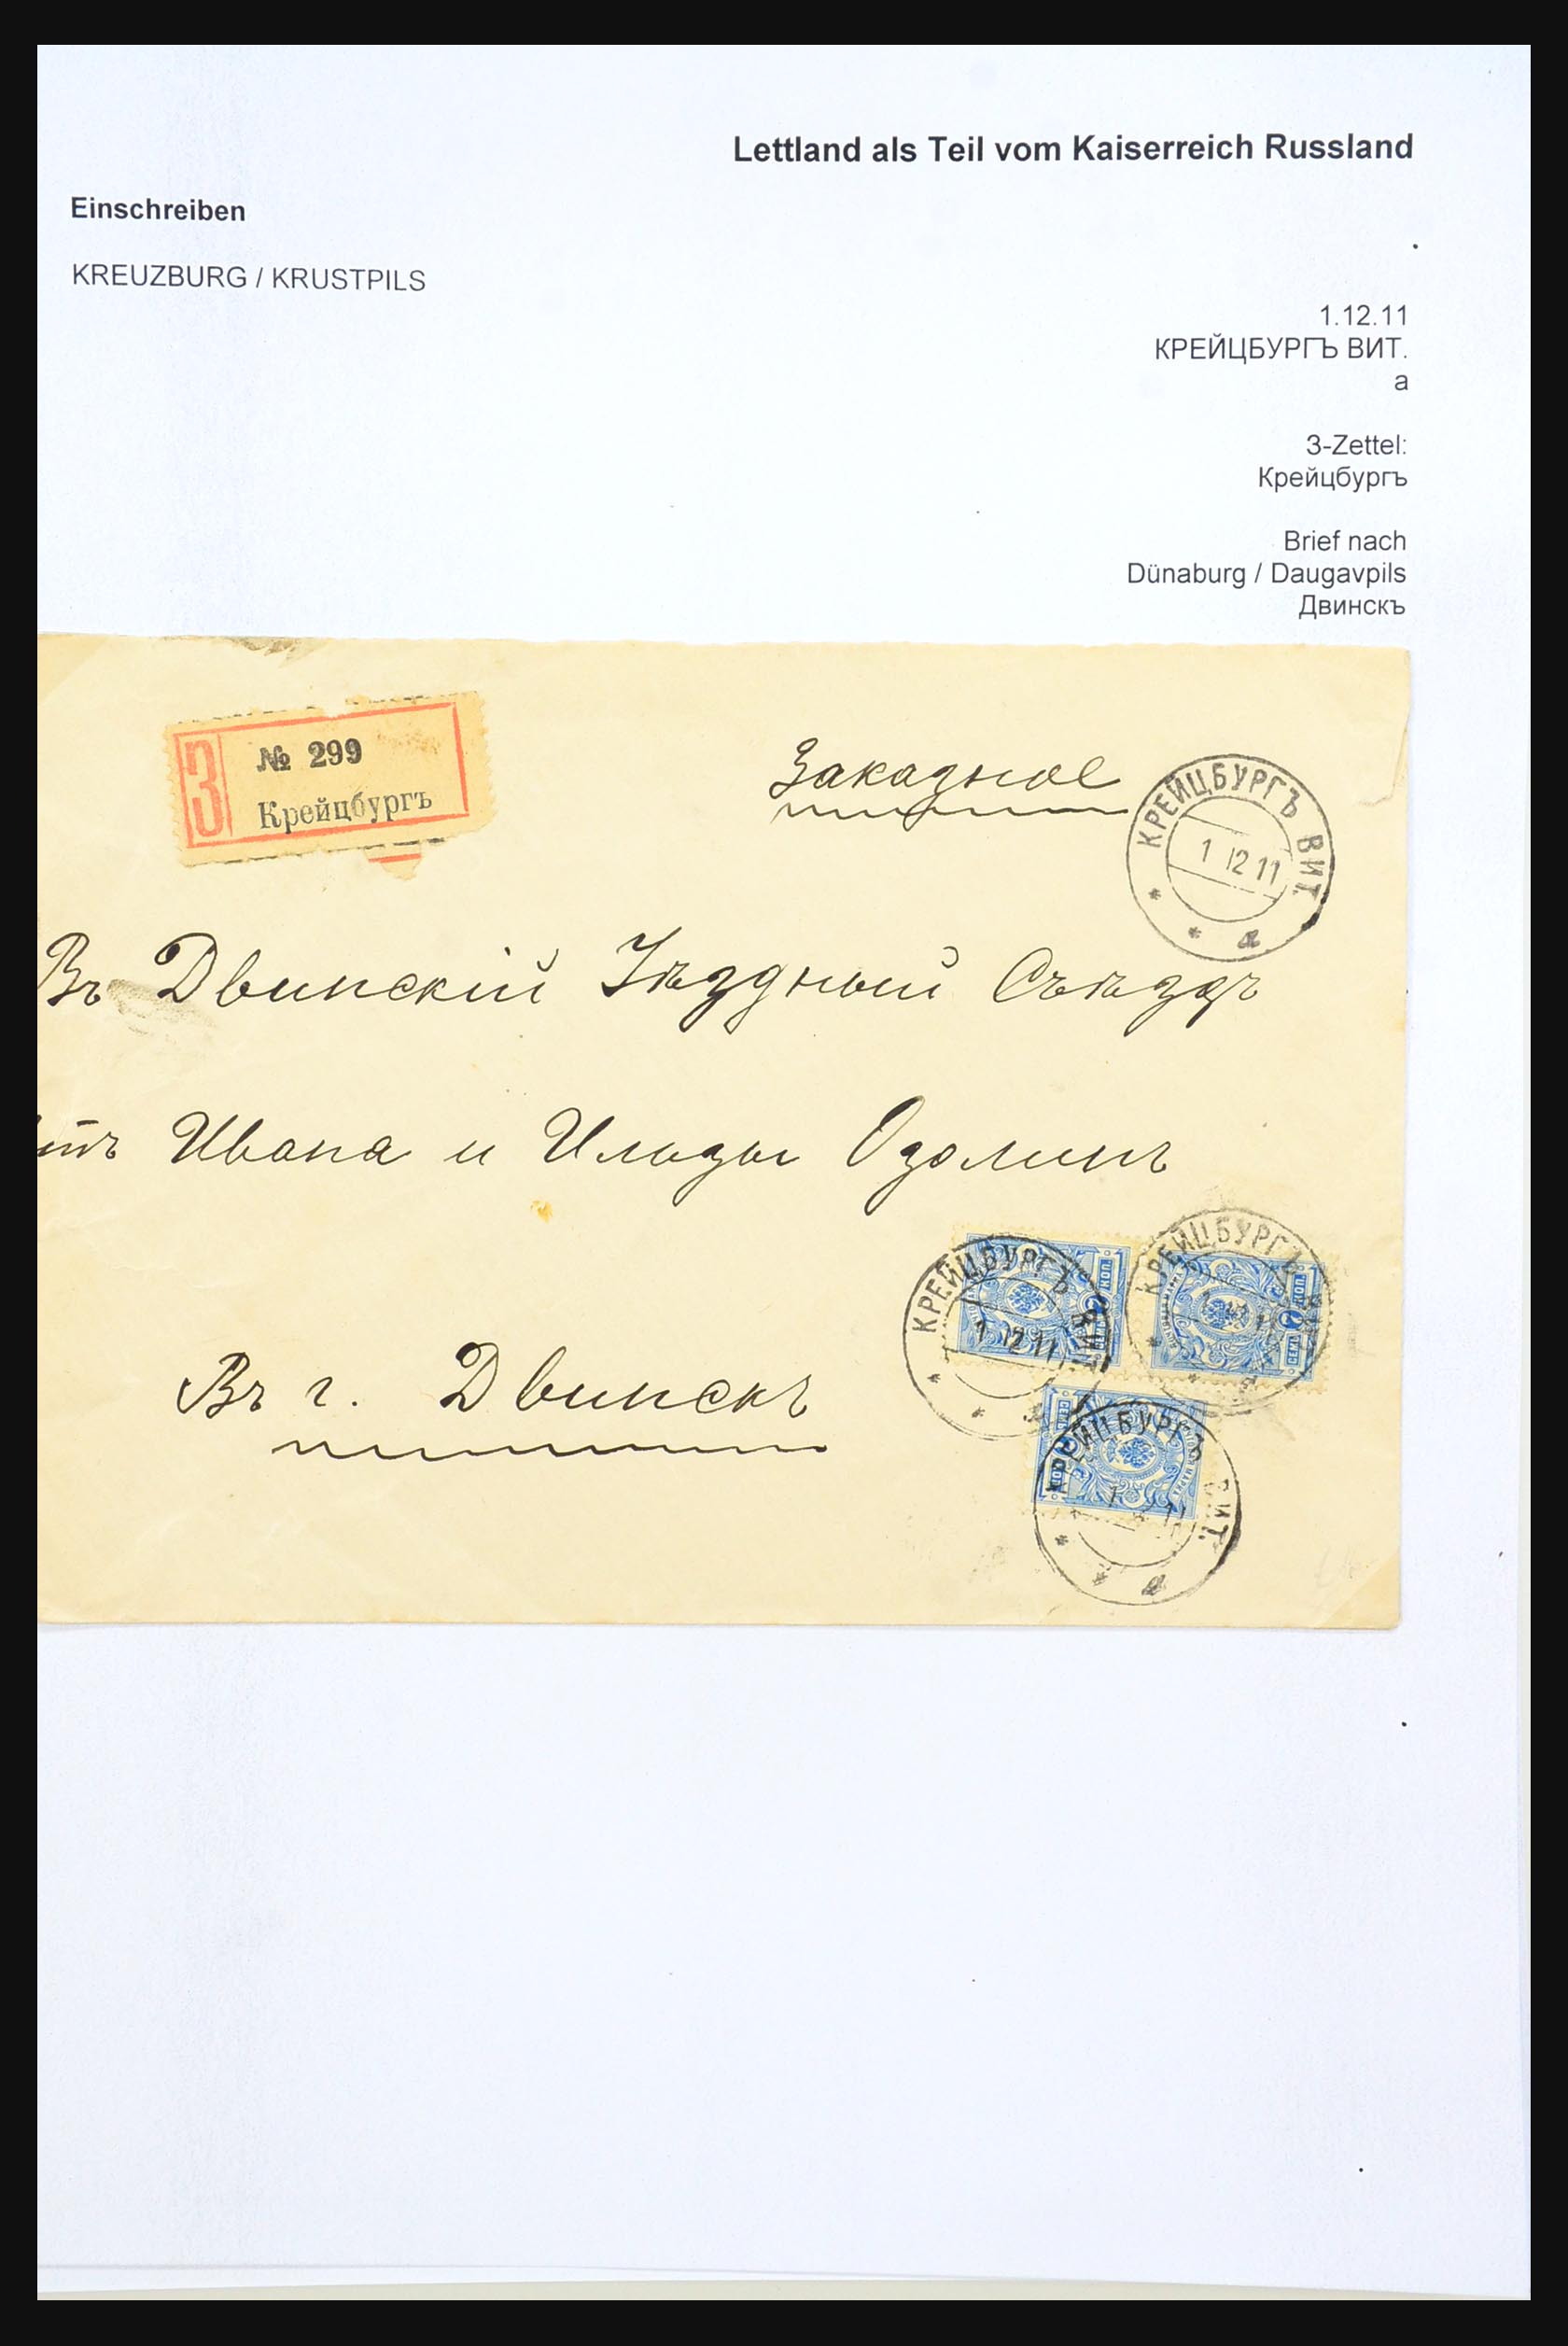 Lettland als Teil vom Kaiserreich Russland
Einschreiben
KREUZBURG / KRUSTPILS
1.12.11
КРЕЙЦБУРГЪ ВИТ.
а
З-Zettel:
Крейцбургъ
Brief nach
Dünaburg / Daugavpils
Двинскъ
З
№ 299
Крейцбургъ
Заказное
КРЕЙЦБУРГЪ ВИТ.
1 12 11
а
Въ Двинскій Уѣздный Съѣздъ
Ивана и Ильзы Озолинъ
Въ г. Двинскъ
КРЕЙЦБУРГЪ ВИТ.
1 12 11
КРЕЙЦБУРГЪ
КРЕЙЦБУРГЪ ВИТ.
а
7 КОП
СЕМЬ
7 КОП
СЕМЬ